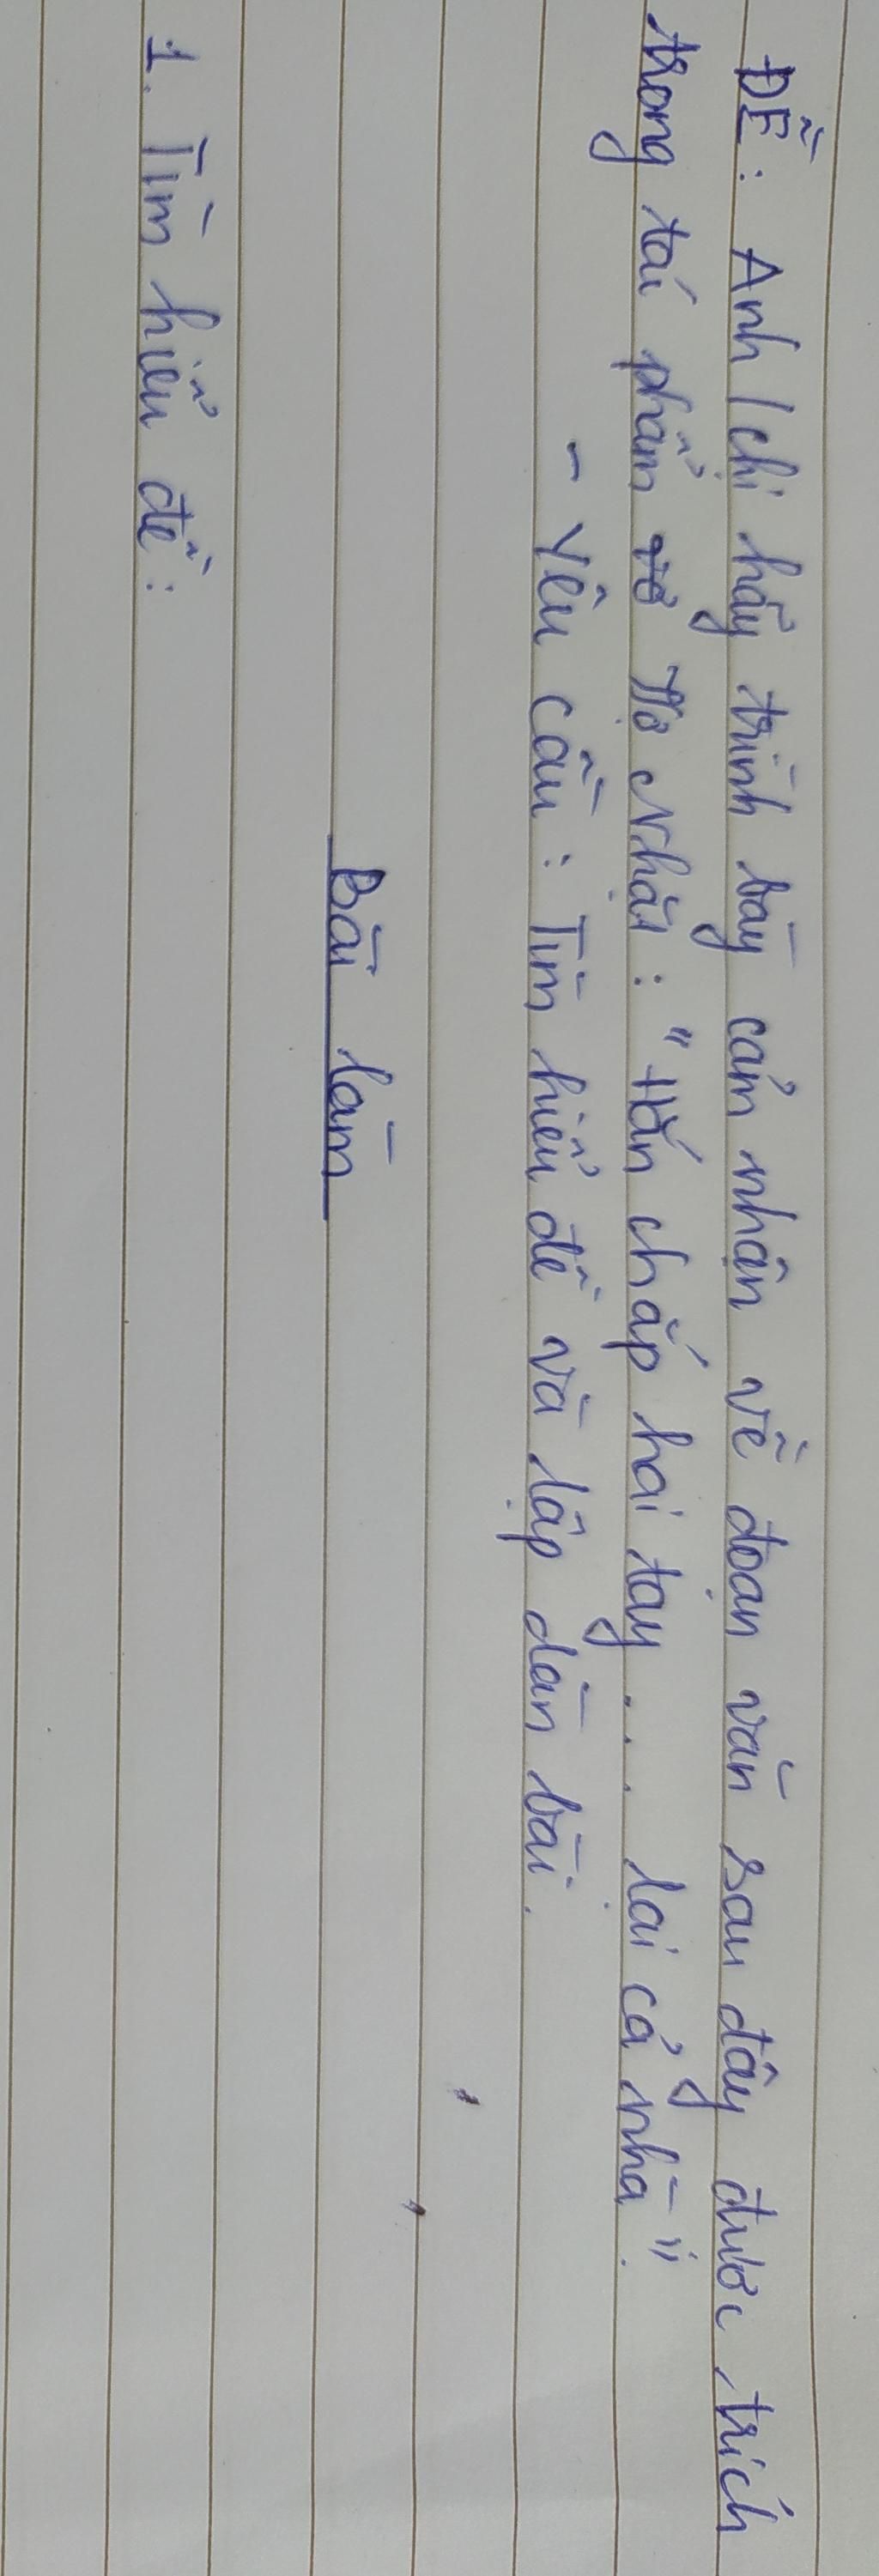 ĐỀ: Anh/chị hãy trình bày cảm nhận về đoạn văn sau đây được trích
trong tác phẩm Vợ Nhặt: "Hắn chắp hai tay ... lại cả nhà".
- Yêu cầu: Tìm hiểu đề và lập dàn bài.
Bài làm
1. Tìm hiểu đề: